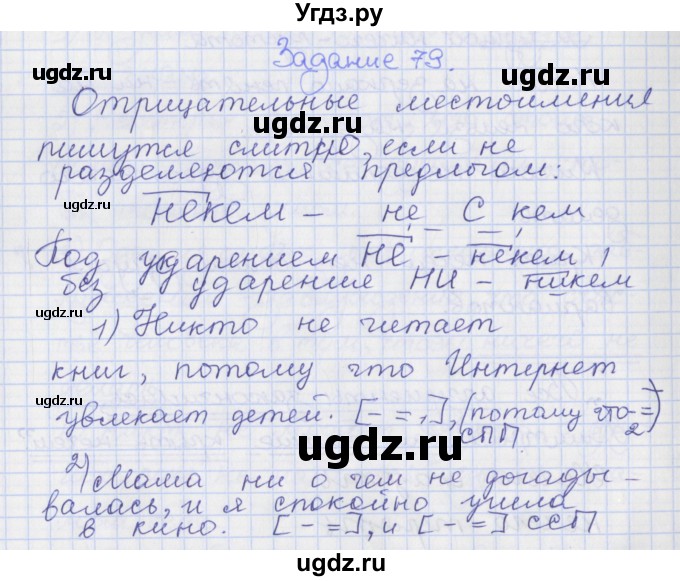 Угдз.ру
Задание 79.
ugdz.ru ugdz.ru
Отрицательные местоимения
ugdz.ru
пишутся слитно, если не
разделяются предлогом:
ugdz.ru ugdz.ru
некем – не с кем
ugdz.ru
Под ударением НЕ – некем,
без ударения НИ – никем
ugdz.ru ugdz.ru
1) Никто не читает
ugdz.ru
книг, потому что Интернет
увлекает детей. [– =, ], (потому что – =)
СПП 2
ugdz.ru ugdz.ru
2) Мама ни о чем не догады –
ugdz.ru
валась, и я спокойно ушла
в кино. [– =], и [– =] ССП
ugdz.ru ugdz.ru
Угдз.ру